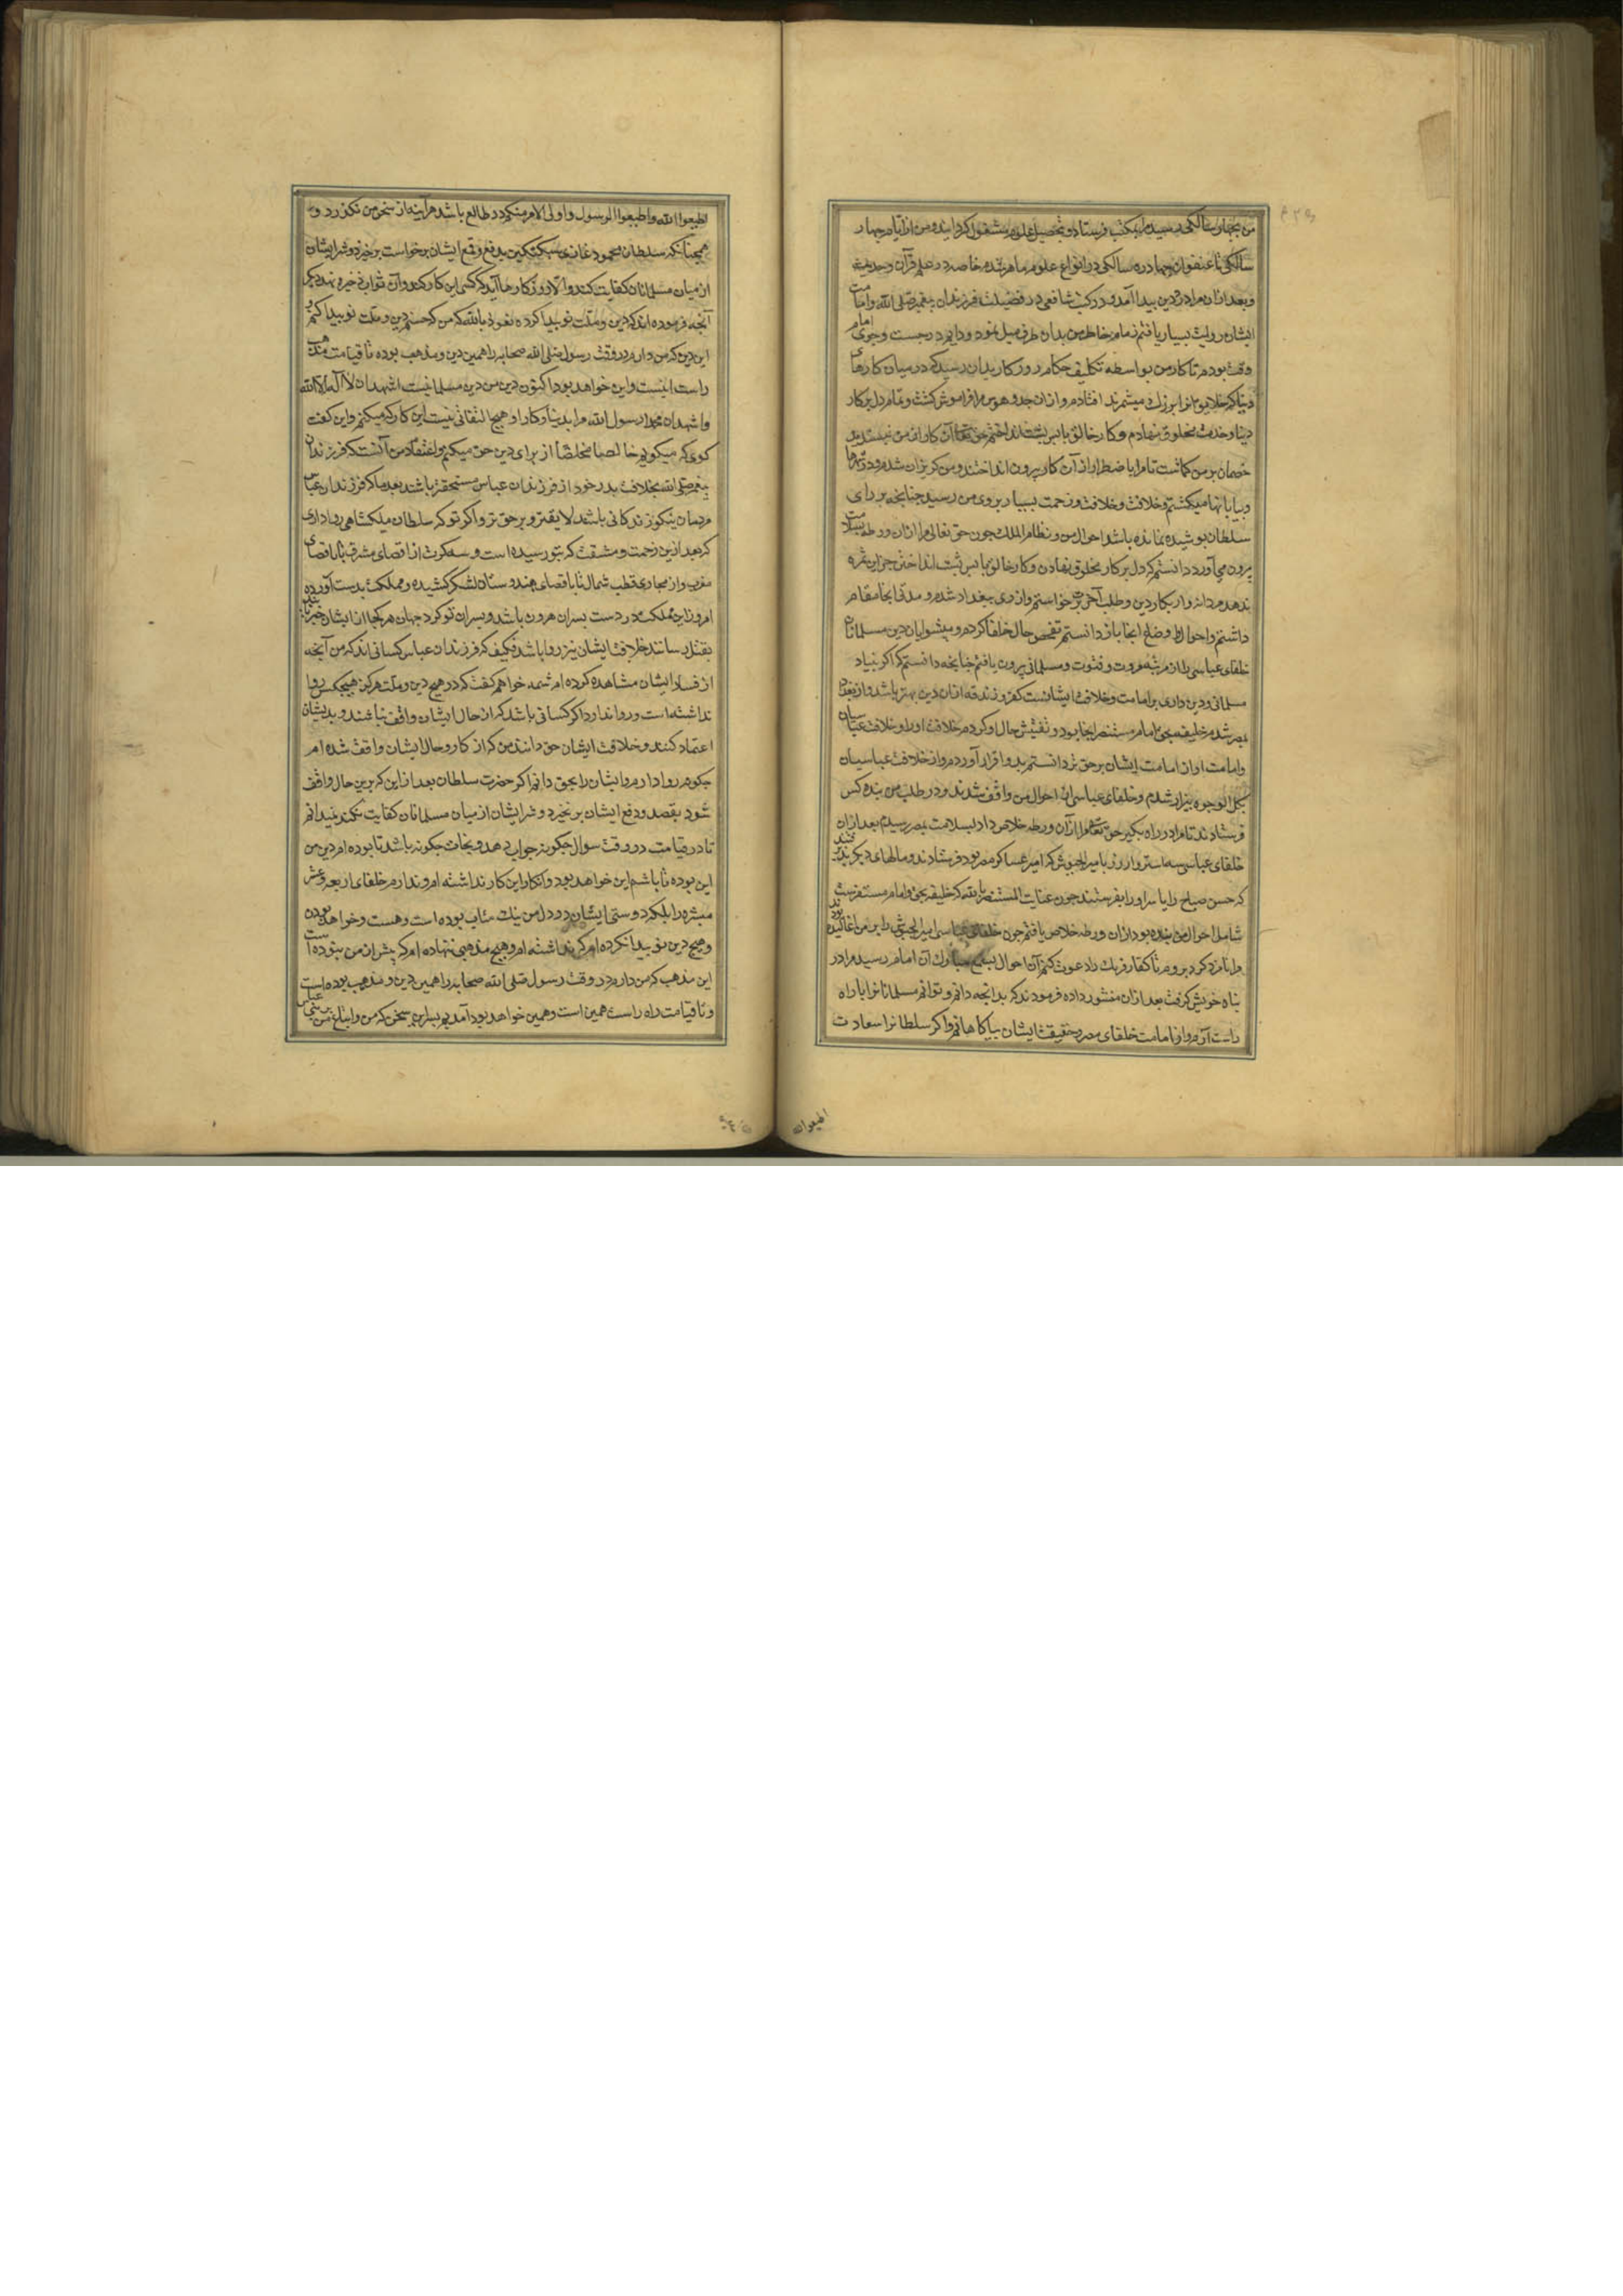 من بچهار سالکی رسیدم مرا بمکتب فرستاد و بتحصیل علوم مشغول کردانید و من از ایام چهار
سالکی تا عنفوان چهارده سالکی در انواع علوم ماهر شدم خاصه در علم قرآن و حدیث
و بعد از آن مرا درد دین پیدا آمد و در کتب شافعی در فضیلت فرزندان پیغمبر صلی الله و امامت
ایشان روایت بسیار یافتم زمام خاطر من بدان طرف میل نمود و دایم در جست و جوی امام
وقت بودم تا کار من بواسطه تکلیف حکام روزکار بدان رسید که در میان کارهای
دنیا که خلایق آنرا بزرك میشمرند افتادم و از آن جد و هوس مرا فراموش کشت و تمام دل بر کار
دنیا و خدمت مخلوق نهادم و کار خالق با پس پشت انداختم حق تعالی آن کار از من نپسندید
خصمان بر من کماشت تا مرا باضطرار از آن کار بیرون انداختند و من کریزان شدم و در شهرها
و بیابانها میکشتم و خلافت و زحمت بسیار بروی من رسید چنانچه بر رای
سلطان پوشیده نمانده باشد احوال من و نظام الملك چون حق تعالی مرا از آن ورطه بسلامت
بیرون می آورد دانستم که دل بر کار مخلوق نهادن و کار خالق با پس پشت انداختن جز این ثمره
ندهد مردانه وار بکار دین و طلب آخرت برخواستم و از ری ببغداد شدم و مدتی آنجا مقام
داشتم و احوال و وضاع آنجا باز دانستم تفحص حال خلفا کردم و پیشوایان دین مسلمانان
خلفای عباسی را از مرتبه مروت و فتوت و مسلمانی بیرون یافتم چنانچه دانستم که اکر بنیاد
مسلمانی و دین داری بر امامت و خلافت ایشانست کفر و زندقه از آن دین بهتر باشد و از بغداد
بمصر شدم خلیفه بحق امام مستنصر آنجا بود و تفتیش حال او کردم خلافت او را و خلافت عباسیان
و امامت او از امامت ایشان بر حق تر دانستم بدو اقرار آوردم و از خلافت عباسیان
بکل الوجوه بیزار شدم و خلفای عباسی از احوال من واقف شدند و در طلب من بنده کس
فرستادند تا مرا در راه بکیرند حق تعالی مرا از آن ورطه خلاص داد بسلامت بمصر رسیدم بعد از آن
خلفای عباسی سه استروار زر بامیر الجیوش که امیر عساکر مصر بود فرستادند و مالهای دیکر
که حسن صباح را یا سر او را بفرستند چون عنایت المستنصر بالله که خلیفه بحق و امام مستقرست
شامل احوال من بنده بود از آن ورطه خلاص یافتم چون خلفای عباسی امیر الجیوش را بر من اغالیده
و نامزد کرد بروم تا کفار فرنك را دعوت کنم آن احوال بسمع مبارك آن امام رسید مرا در
پناه خویش کرفت بعد از آن منشور داده فرمودند که بدانچه دانم و توانم مسلمانان را با راه
راست آرم و از امامت خلفای مصر و حقیقت ایشان بیاکاهانم و اکر سلطانرا سعادت
اطیعوا الله
اطیعوا الله و اطیعوا الرسول و اولی الامر منکم در طالع باشد هر آینه از سخن من نکذرد و
همچنانکه سلطان محمود غازی سبکتکین بدفع و قمع ایشان برخواست برخیزد و شر ایشان
از میان مسلمانان کفایت کند و الا روزکار آید که کسی این کار کند و آن ثواب ذخیره نهد دیکر
آنچه فرموده اند که دین و ملت نو پیدا کرده نعوذ بالله که من که حسنم دین و ملت نو پیدا کنم و
این دین که من دارم در وقت رسول صلی الله صحابه را همین دین و مذهب بوده تا قیامت مذهب
راست اینست و این خواهد بود اکنون دین من دین مسلمانیست اشهد ان لا اله الا الله
و اشهد ان محمدا رسول الله مرا بدنیا و کار او هیچ التفاتی نیست این کار که میکنم و این کفت
کوی که میکویم خالصا مخلصا از برای دین حق میکنم و اعتقاد من آنست که فرزندان
پیغمبر صلی الله بخلافت پدر خود از فرزندان عباس مستحقتر باشند بعد ما که فرزندان عباس
مردمان نیکو زندکانی باشند لایقتر و بر حق تر و اکر تو که سلطان ملکشاهی روا داری
که بعد ازین زحمت و مشقت که بتو رسیده است و سه کرت از اقصای مشرق تا باقصای
مغرب و از مجاری قطب شمال تا باقصای هندوستان لشکر کشیده و مملکت بدست آورده
امروز این مملکت در دست پسران هرون باشد و پسران تو کرد جهان هر کجا از ایشان خبر یابند
بقتل رسانند خلافت ایشان نیز روا باشد فکیف که فرزندان عباس کسانی اند که من آنچه
از فساد ایشان مشاهده کرده ام شمه خواهم کفت که در هیچ دین و ملت هرکز هیچکس روا
نداشته است و روا ندارد اکر کسانی باشد که از حال ایشان واقف نباشند و بدیشان
اعتماد کنند و خلافت ایشان حق دانند من که از کار و حال ایشان واقف شده ام
چکونه روا دارم و ایشان را بحق دانم اکر حضرت سلطان بعد از این که برین حال واقف
شود بقصد و دفع ایشان برنخیزد و شر ایشان از میان مسلمانان کفایت نکند نمیدانم
تا در قیامت در وقت سوال چکونه جواب دهد و نجات چکونه باشد تا بوده ام دین من
این بوده تا باشم این خواهد بود و انکار این کار نداشته ام و ندارم خلفای اربعه و عشر
مبشره را بلکه دوستی ایشان در دل من بوده است و هست و خواهد بودن
و هیچ دین نو پیدا نکرده ام و هیچ مذهبی ننهاده ام که پیش از من نبوده است
این مذهب که من دارم در وقت رسول صلی الله صحابه را همین دین و مذهب بوده است
و تا قیامت راه راست همین است و همین خواهد بود آمدیم بسر این سخن که من و اتباع من بنی عباس